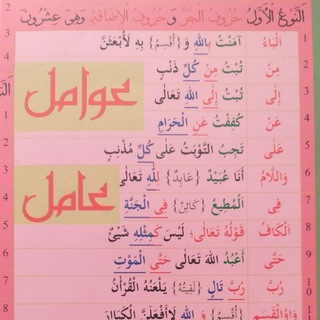 اَلنَّوْعُ الْاَوَّلُ حُرُوفُ الْجَرِّ وَ حُرُوفُ الْاِضَافَةِ وَهِىَ عِشْرُونَ
اَلْبَاءُ اٰمَنْتُ بِاللهِ وَ {اُقْسِمُ} بِهِ لَاُبْعَثَنَّ
مِنْ تُبْتُ مِنْ كُلِّ ذَنْبٍ
اِلٰى تُبْتُ اِلَى اللهِ تَعَالٰى
عَنْ كَفَفْتُ عَنِ الْحَرَامِ
عَلٰى تَجِبُ التَّوْبَةُ عَلٰى كُلِّ مُذْنِبٍ
وَاللَّامُ اَنَا عُبَيْدٌ {عَابِدٌ} لِلّٰهِ تَعَالٰى
فِى اَلْمُطِيعُ {كَائِنٌ} فِى الْجَنَّةِ
اَلْكَافُ قَوْلُهُ تَعَالٰى؛ لَيْسَ كَمِثْلِهِ شَيْئٌ
حَتّٰى اَعْبُدُ اللهَ تَعَالٰى حَتَّى الْمَوْتِ
رُبَّ رُبَّ تَالٍ {لَقِيتُهُ} يَلْعَنُهُ الْقُرْاٰنُ
وَاوُالْقَسَمِ {اُقْسِمُ} وَ اللهِ لَااَفْعَلَنَّ الْكَبَائِرَ
عوامل
عامل